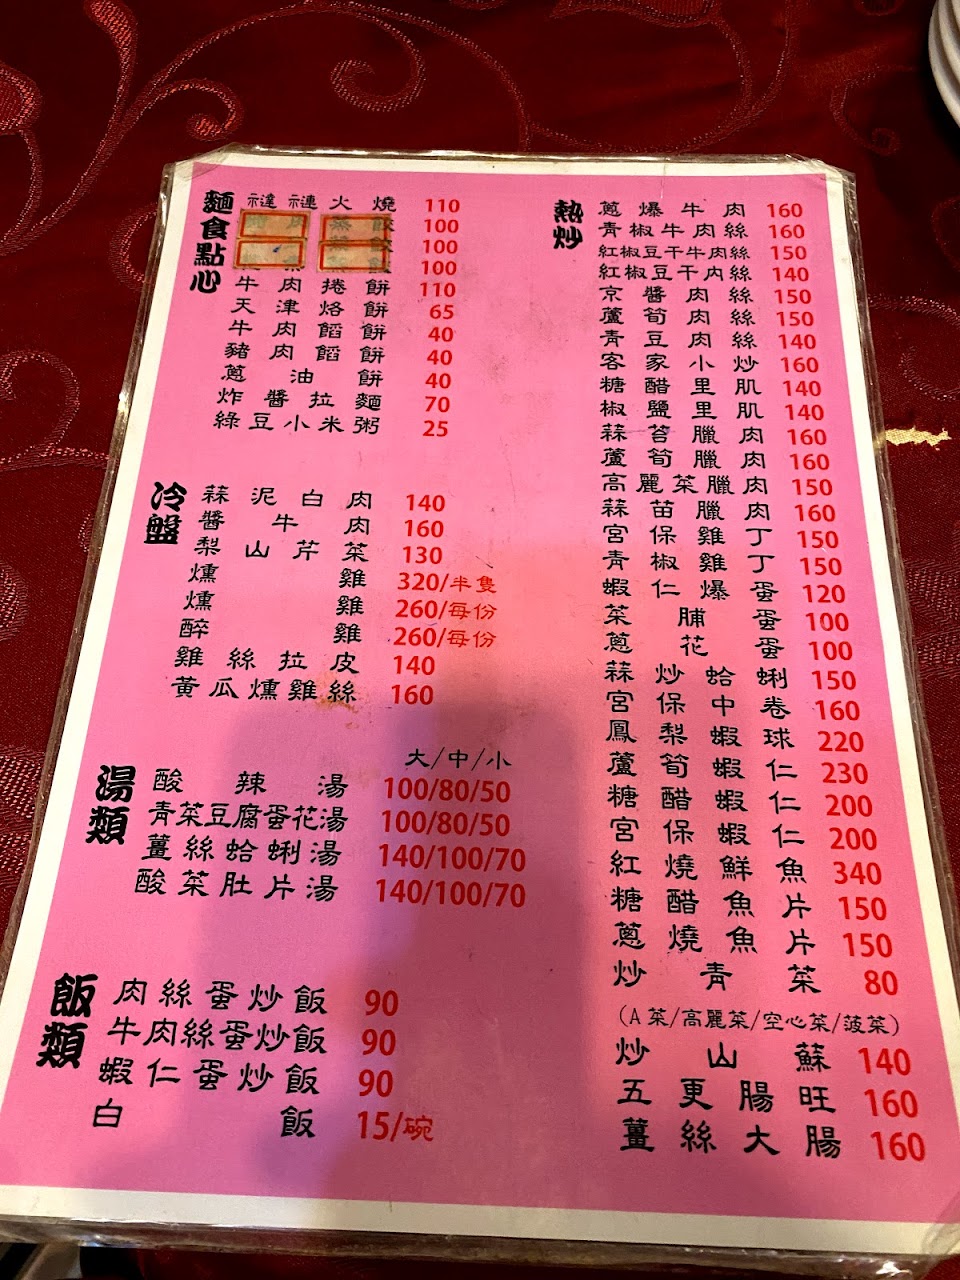 麵食點心
褡褳火燒 110
100
100
100
牛肉捲餅 110
天津烙餅 65
牛肉餡餅 40
豬肉餡餅 40
蔥油餅 40
炸醬拉麵 70
綠豆小米粥 25
冷盤
蒜泥白肉 140
醬牛肉 160
梨山芹菜 130
燻雞 320/半隻
燻雞 260/每份
醉雞 260/每份
雞絲拉皮 140
黃瓜燻雞絲 160
湯類
大/中/小
酸辣湯 100/80/50
青菜豆腐蛋花湯 100/80/50
薑絲蛤蜊湯 140/100/70
酸菜肚片湯 140/100/70
飯類
肉絲蛋炒飯 90
牛肉絲蛋炒飯 90
蝦仁蛋炒飯 90
白飯 15/碗
熱炒
蔥爆牛肉 160
青椒牛肉絲 160
紅椒豆干牛肉絲 150
紅椒豆干肉絲 140
京醬肉絲 150
蘆筍肉絲 150
青豆肉絲 140
客家小炒 160
糖醋里肌 140
椒鹽里肌 140
蒜苔臘肉 160
蘆筍臘肉 160
高麗菜臘肉 150
蒜苗臘肉 160
宮保雞丁 150
青椒雞丁 150
蝦仁爆蛋 120
菜脯蛋 100
蔥花蛋 100
蒜炒蛤蜊 150
宮保中卷 160
鳳梨蝦球 220
蘆筍蝦仁 230
糖醋蝦仁 200
宮保蝦仁 200
紅燒鮮魚 340
糖醋魚片 150
蔥燒魚片 150
炒青菜 80
(A菜/高麗菜/空心菜/菠菜)
炒山蘇 140
五更腸旺 160
薑絲大腸 160